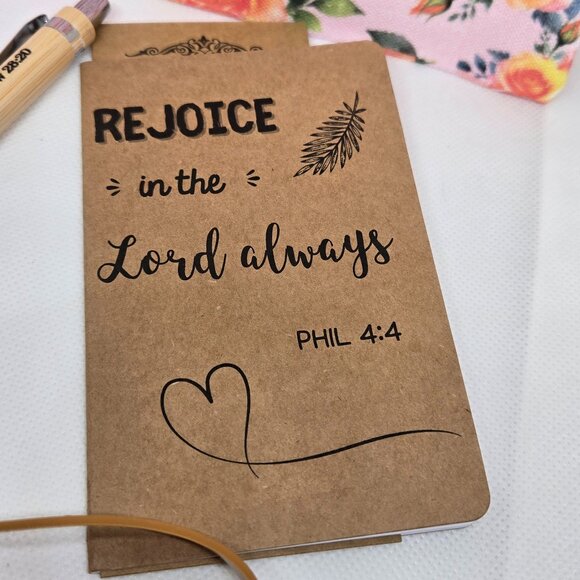 REJOICE
in the
Lord always
PHIL 4:4
28:20